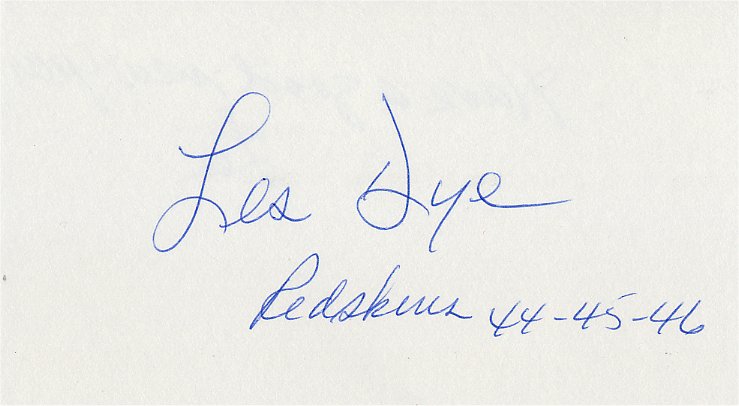 Les Dye
Redskins 44-45-46